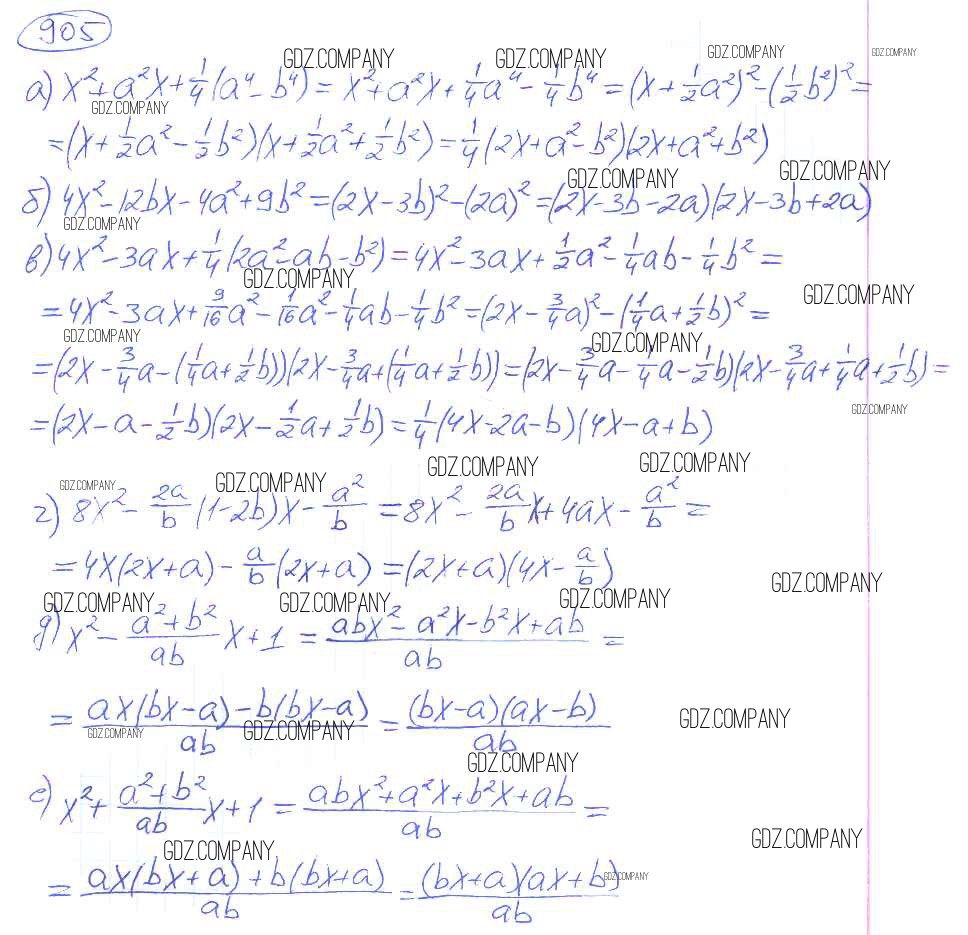 905
GDZ.COMPANY GDZ.COMPANY GDZ.COMPANY GDZ.COMPANY
а) x² + a²x + 1/4(a⁴ - b⁴) = x² + a²x + 1/4a⁴ - 1/4b⁴ = (x + 1/2a²)² - (1/2b²)² =
GDZ.COMPANY
= (x + 1/2a² - 1/2b²)(x + 1/2a² + 1/2b²) = 1/4(2x + a² - b²)(2x + a² + b²)
GDZ.COMPANY GDZ.COMPANY
б) 4x² - 12bx - 4a² + 9b² = (2x - 3b)² - (2a)² = (2x - 3b - 2a)(2x - 3b + 2a)
GDZ.COMPANY
в) 4x² - 3ax + 1/4(2a² - ab - b²) = 4x² - 3ax + 1/2a² - 1/4ab - 1/4b² =
GDZ.COMPANY GDZ.COMPANY
= 4x² - 3ax + 9/16a² - 1/16a² - 1/4ab - 1/4b² = (2x - 3/4a)² - (1/4a + 1/2b)² =
GDZ.COMPANY GDZ.COMPANY
= (2x - 3/4a - (1/4a + 1/2b))(2x - 3/4a + (1/4a + 1/2b)) = (2x - 3/4a - 1/4a - 1/2b)(2x - 3/4a + 1/4a + 1/2b) =
GDZ.COMPANY
= (2x - a - 1/2b)(2x - 1/2a + 1/2b) = 1/4(4x - 2a - b)(4x - a + b)
GDZ.COMPANY GDZ.COMPANY GDZ.COMPANY GDZ.COMPANY
г) 8x² - 2a/b (1 - 2b)x - a²/b = 8x² - 2a/b x + 4ax - a²/b =
= 4x(2x + a) - a/b(2x + a) = (2x + a)(4x - a/b)
GDZ.COMPANY GDZ.COMPANY GDZ.COMPANY GDZ.COMPANY
д) x² - (a² + b²)/ab x + 1 = (abx² - a²x - b²x + ab)/ab =
= (ax(bx - a) - b(bx - a))/ab = (bx - a)(ax - b)/ab
GDZ.COMPANY GDZ.COMPANY GDZ.COMPANY
GDZ.COMPANY
е) x² + (a² + b²)/ab x + 1 = (abx² + a²x + b²x + ab)/ab =
GDZ.COMPANY GDZ.COMPANY
= (ax(bx + a) + b(bx + a))/ab = (bx + a)(ax + b)/ab
GDZ.COMPANY